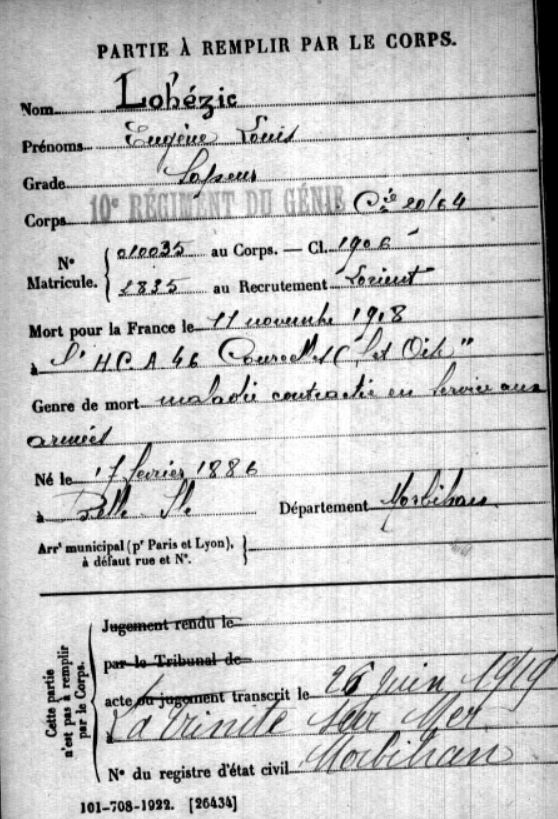 PARTIE À REMPLIR PAR LE CORPS.
Nom Lohézic
Prénoms Eugène Louis
Grade Sapeur
Corps 10e RÉGIMENT DU GÉNIE Cie 20/64
N° Matricule. 010035 au Corps. — Cl. 1906
2835 au Recrutement Lorient
Mort pour la France le 11 novembre 1918
à l'H.C.A 46 Oise"
Genre de mort maladie contractée en service aux
armées
Né le 17 février 1886
à Belle Ile Département Morbihan
Arrt municipal (pr Paris et Lyon),
à défaut rue et N°.
Cette partie n'est pas à remplir par le Corps.
Jugement rendu le
par le Tribunal de
acte ou jugement transcrit le 26 Juin 1919
à La Trinité sur Mer
Morbihan
N° du registre d'état civil
101-708-1922. [26434]